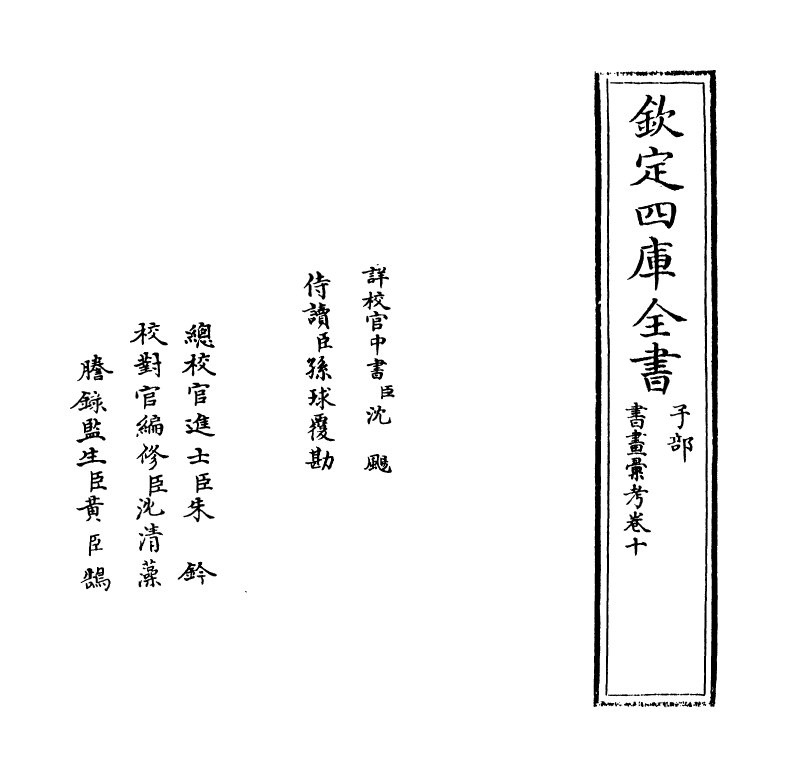 欽定四庫全書
子部
書畫彚考卷十
詳校官中書臣沈颺
侍讀臣孫球覆勘
總校官進士臣朱鈐
校對官編修臣沈清藻
謄錄監生臣黄臣鵠